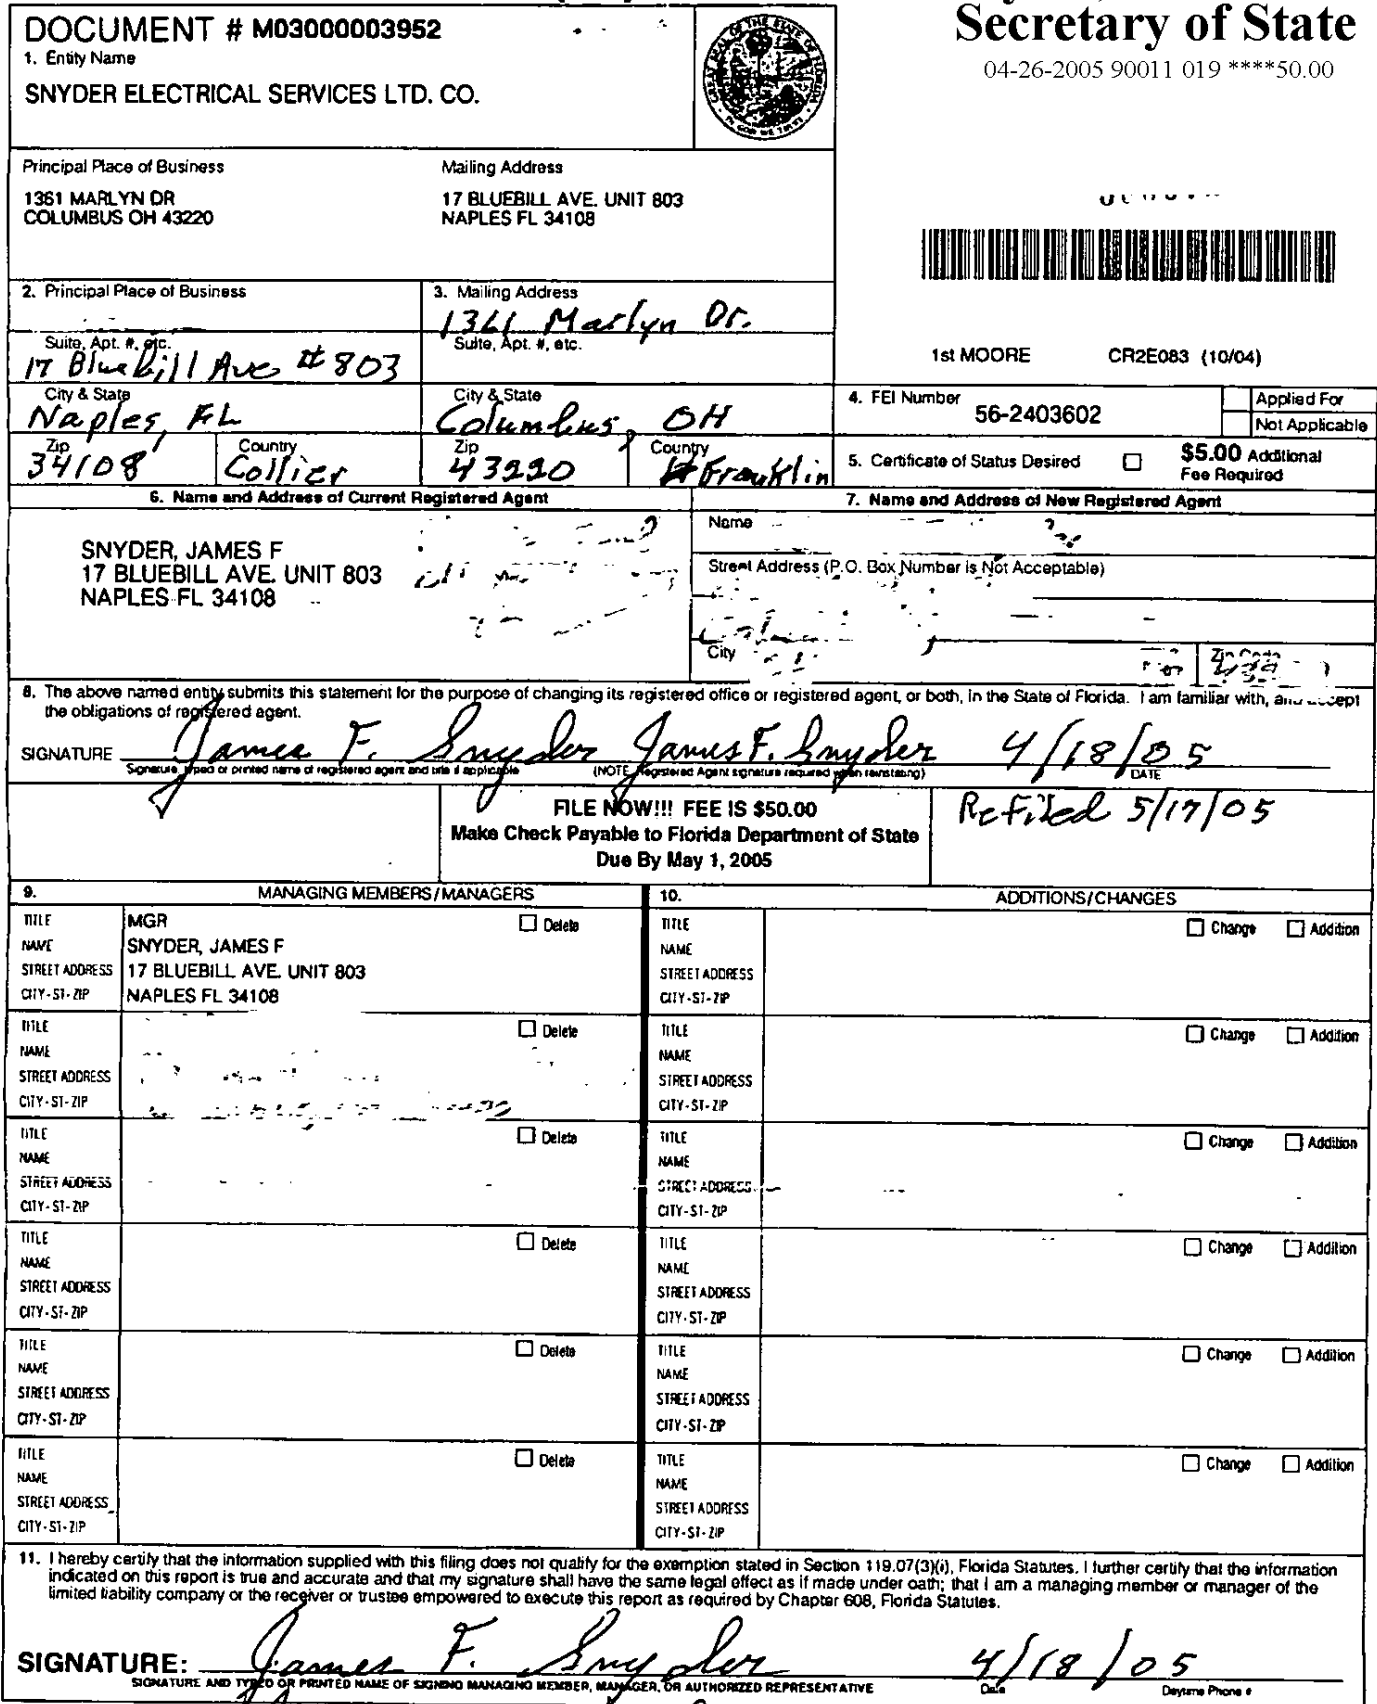 DOCUMENT # M03000003952
1. Entity Name
SNYDER ELECTRICAL SERVICES LTD. CO.
Secretary of State
04-26-2005 90011 019 ****50.00
Principal Place of Business
1361 MARLYN DR
COLUMBUS OH 43220
Mailing Address
17 BLUEBILL AVE. UNIT 803
NAPLES FL 34108
2. Principal Place of Business
3. Mailing Address
1361 Marlyn Dr.
Suite, Apt. #, etc.
17 Bluebill Ave # 803
Suite, Apt. #, etc.
City & State
Naples, FL
City & State
Columbus, OH
Zip
34108
Country
Collier
Zip
43220
Country
Franklin
1st MOORE CR2E083 (10/04)
4. FEI Number
56-2403602
Applied For
Not Applicable
5. Certificate of Status Desired
$5.00 Additional
Fee Required
6. Name and Address of Current Registered Agent
SNYDER, JAMES F
17 BLUEBILL AVE. UNIT 803
NAPLES FL 34108
7. Name and Address of New Registered Agent
Name
Street Address (P.O. Box Number is Not Acceptable)
City
Zip Code
8. The above named entity submits this statement for the purpose of changing its registered office or registered agent, or both, in the State of Florida. I am familiar with, and accept
the obligations of registered agent.
SIGNATURE James F. Snyder James F. Snyder 4/18/05
Signature, typed or printed name of registered agent and title if applicable
(NOTE Registered Agent signature required when reinstating)
DATE
FILE NOW!!! FEE IS $50.00
Make Check Payable to Florida Department of State
Due By May 1, 2005
Refiled 5/17/05
9. MANAGING MEMBERS/MANAGERS
10. ADDITIONS/CHANGES
TITLE MGR Delete
NAME SNYDER, JAMES F
STREET ADDRESS 17 BLUEBILL AVE. UNIT 803
CITY-ST-ZIP NAPLES FL 34108
TITLE Change Addition
NAME
STREET ADDRESS
CITY-ST-ZIP
TITLE Delete
NAME
STREET ADDRESS
CITY-ST-ZIP
TITLE Change Addition
NAME
STREET ADDRESS
CITY-ST-ZIP
TITLE Delete
NAME
STREET ADDRESS
CITY-ST-ZIP
TITLE Change Addition
NAME
STREET ADDRESS
CITY-ST-ZIP
TITLE Delete
NAME
STREET ADDRESS
CITY-ST-ZIP
TITLE Change Addition
NAME
STREET ADDRESS
CITY-ST-ZIP
TITLE Delete
NAME
STREET ADDRESS
CITY-ST-ZIP
TITLE Change Addition
NAME
STREET ADDRESS
CITY-ST-ZIP
TITLE Delete
NAME
STREET ADDRESS
CITY-ST-ZIP
TITLE Change Addition
NAME
STREET ADDRESS
CITY-ST-ZIP
11. I hereby certify that the information supplied with this filing does not qualify for the exemption stated in Section 119.07(3)(i), Florida Statutes. I further certify that the information
indicated on this report is true and accurate and that my signature shall have the same legal effect as if made under oath; that I am a managing member or manager of the
limited liability company or the receiver or trustee empowered to execute this report as required by Chapter 608, Florida Statutes.
SIGNATURE: James F. Snyder 4/18/05
SIGNATURE AND TYPED OR PRINTED NAME OF SIGNING MANAGING MEMBER, MANAGER, OR AUTHORIZED REPRESENTATIVE
Date
Daytime Phone #